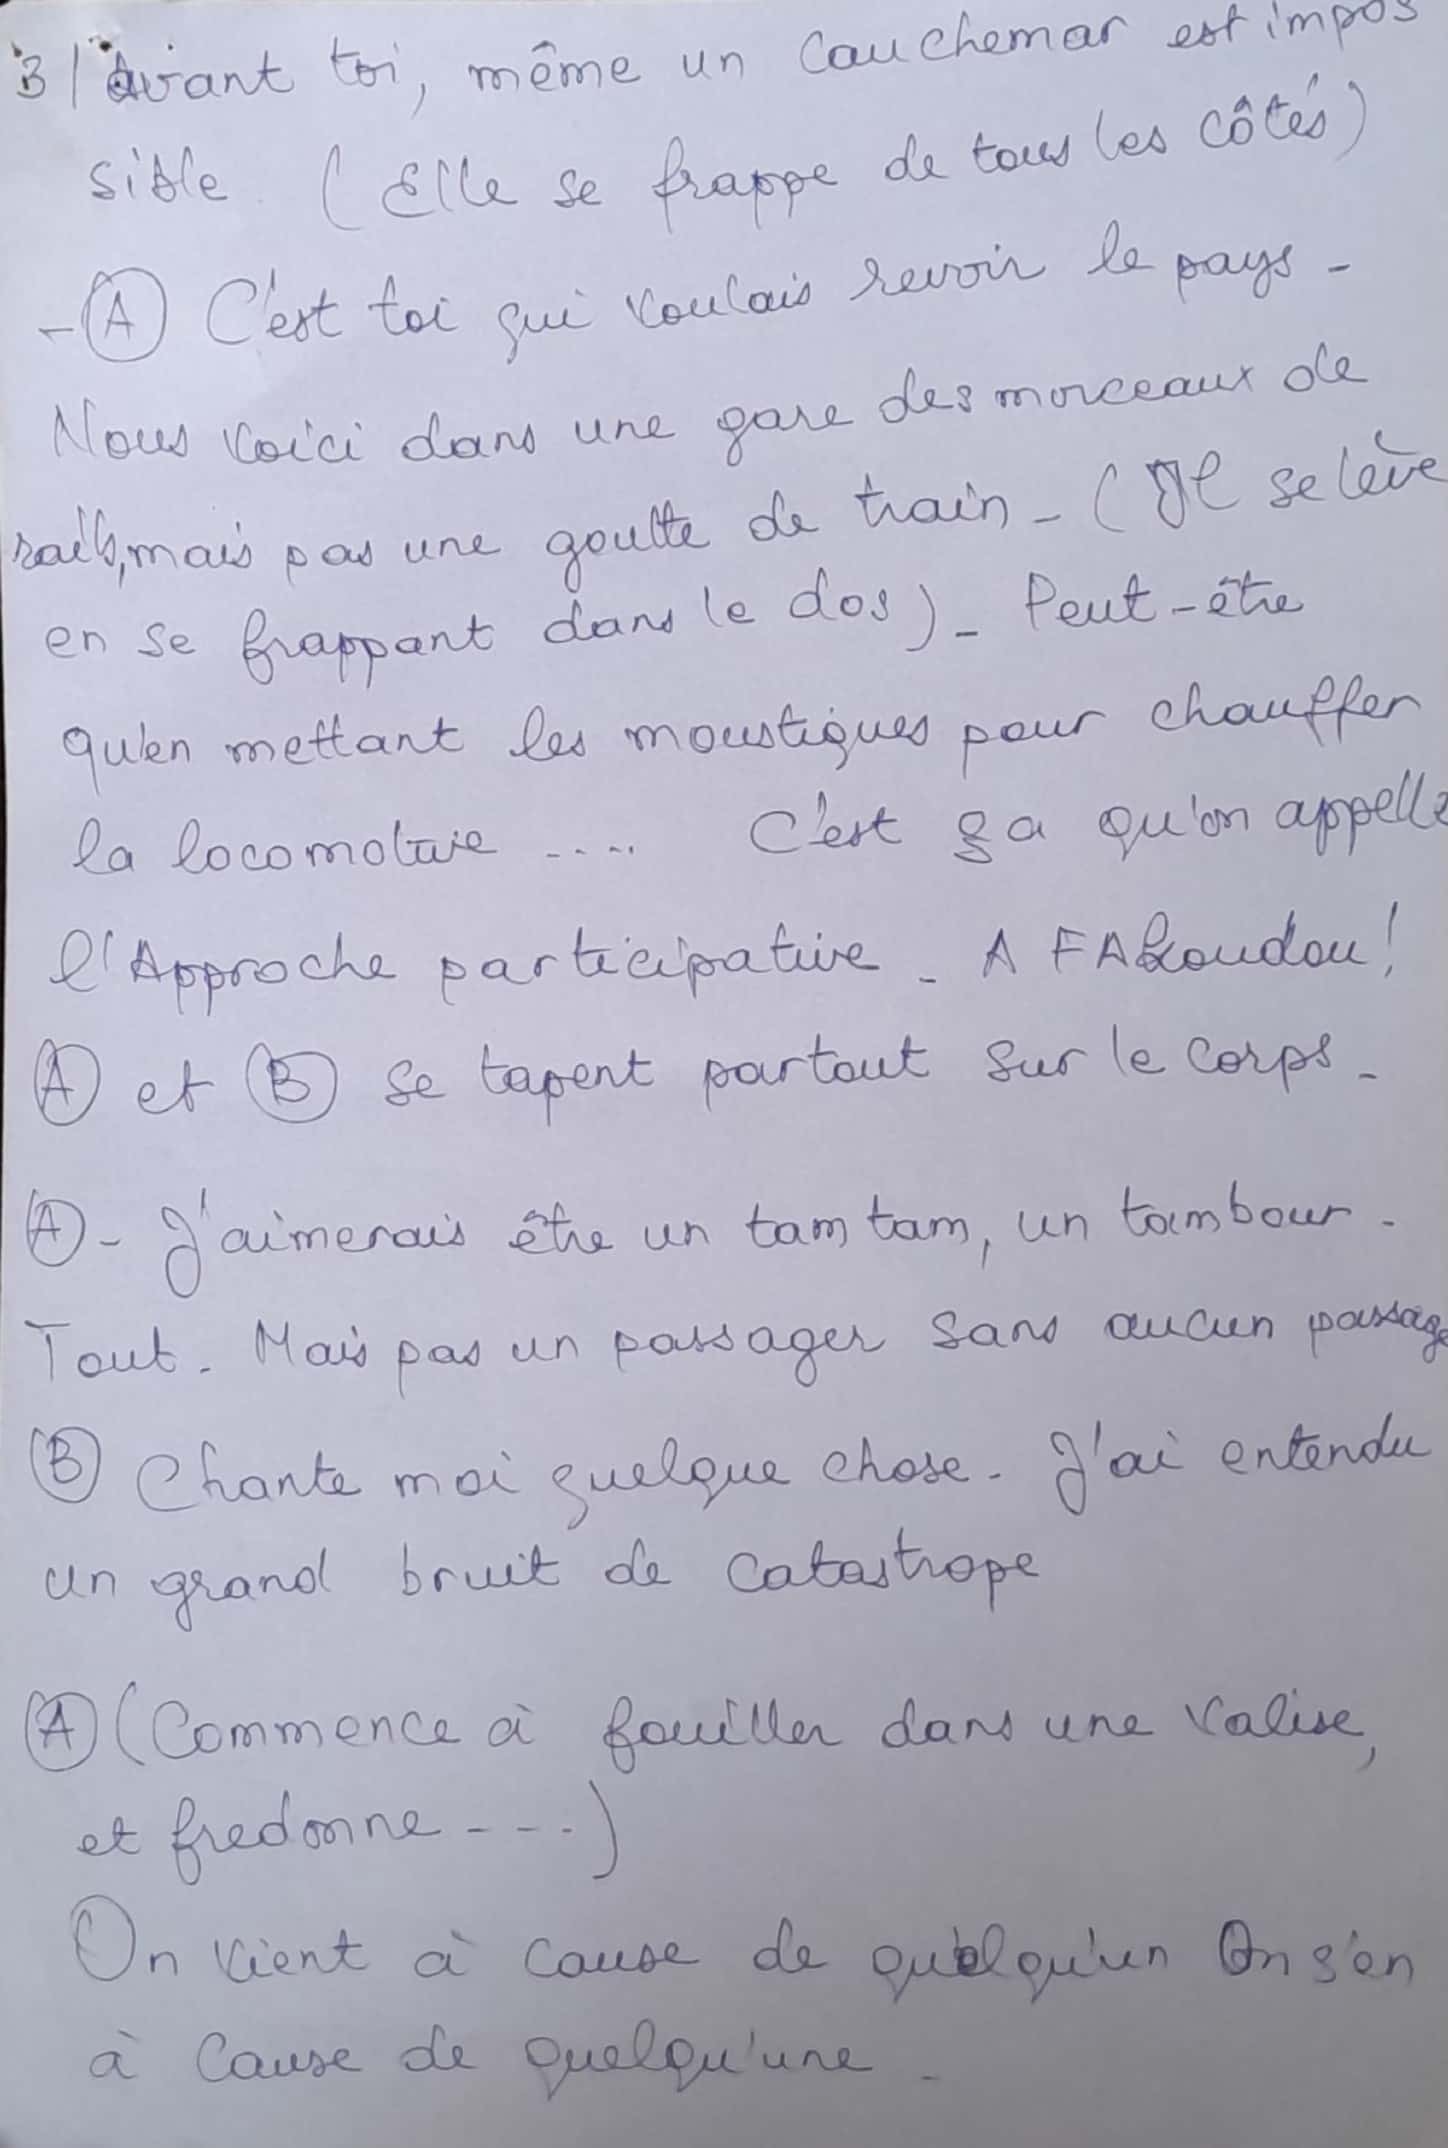 B/ Avant toi, même un cauchemar est impos
sible. (Elle se frappe de tous les côtés)
- A C'est toi qui voulais revoir le pays -
Nous voici dans une gare des morceaux de
rails, mais pas une goutte de train - (Il se lève
en se frappant dans le dos) - Peut-être
qu'en mettant les moustiques pour chauffer
la locomotive .... C'est ça qu'on appelle
l'Approche participative - A FAKoudou!
A et B se tapent partout sur le corps -
A - J'aimerais être un tam tam, un tambour -
Tout - Mais pas un passager sans aucun passage
B Chante moi quelque chose - J'ai entendu
un grand bruit de catastrope
A (Commence à fouiller dans une valise,
et fredonne ----)
On vient à cause de quelqu'un On s'en
à cause de quelqu'une -